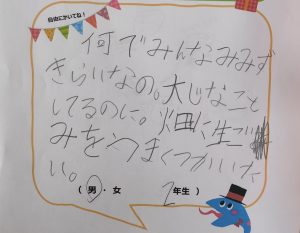 自由にかいてね!
何でみんなみみず
きらいなの。大じなこと
してるのに。畑に生ご
みをうまくつかいた
い。
( 男 ・ 女 2 年生 )